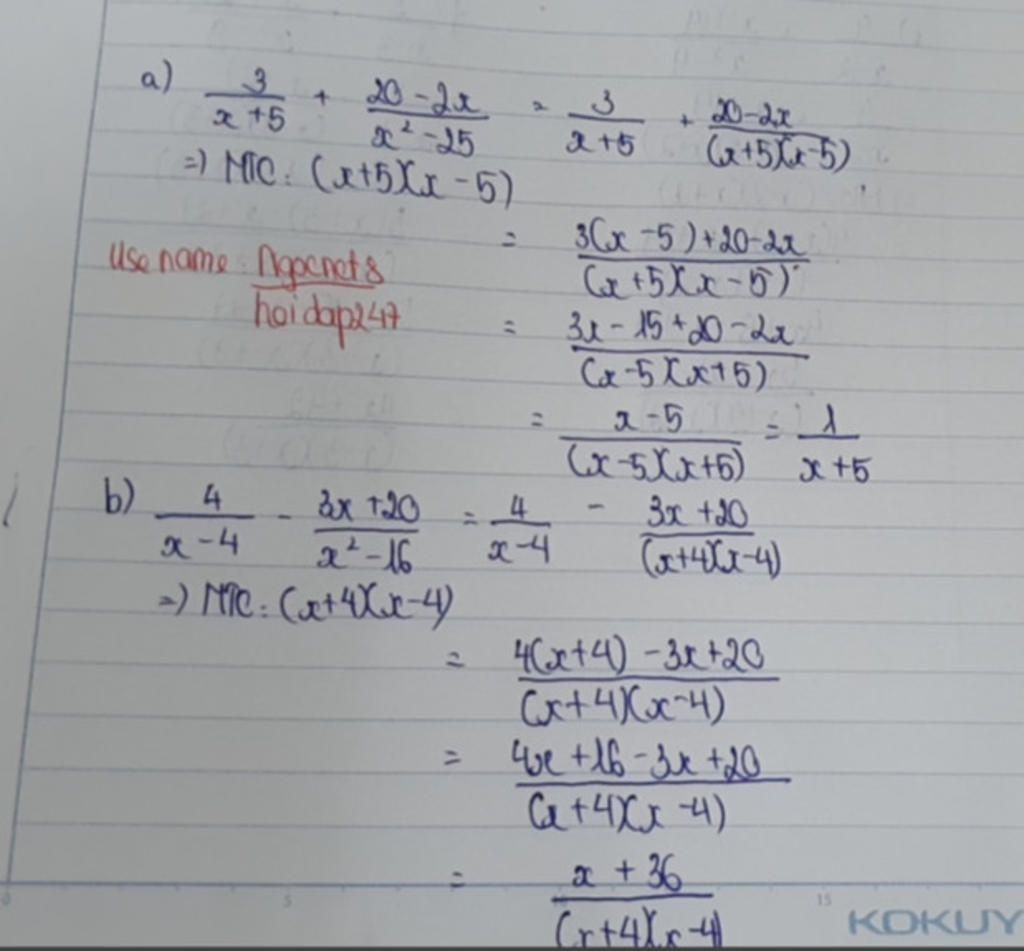 a) 3/(x+5) + (20-2x)/(x²-25) = 3/(x+5) + (20-2x)/((x+5)(x-5))
=) MTC: (x+5)(x-5)
= (3(x-5)+20-2x)/((x+5)(x-5))
Use name: Ngocnct8
hoidap247
= (3x-15+20-2x)/((x-5)(x+5))
= (x-5)/((x-5)(x+5)) = 1/(x+5)
b) 4/(x-4) - (3x+20)/(x²-16) = 4/(x-4) - (3x+20)/((x+4)(x-4))
=) MTC: (x+4)(x-4)
= (4(x+4)-3x+20)/((x+4)(x-4))
= (4x+16-3x+20)/((x+4)(x-4))
= (x+36)/((x+4)(x-4)
0 5 15 KOKUY